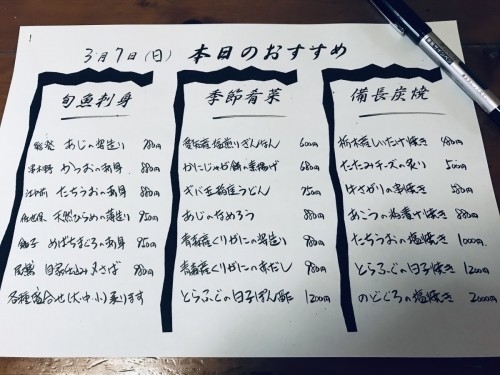 3月7日(日) 本日のおすすめ
旬魚刺身
あじの姿造り 780円
かつおの刺身 880円
たちうおの刺身 880円
天然ひらめの薄造り 950円
銚子 めばちまぐろの刺身 950円
自家仕込み〆さば 980円
各種盛合せ(大・中・小)承ります
季節肴菜
600円
かにじゃが餅の 揚げ 680円
稲庭うどん 750円
あじのなめろう 880円
青森産くりがにの 980円
青森産くりがにの 980円
とらふぐの白子ぽん酢 1200円
備長炭焼
栃木産しいたけ焼き 480円
たたみチーズの炙り 500円
はさがりの串焼き 580円
あこうの 焼き 880円
たちうおの塩焼き 1000円
とらふぐの白子焼き 1200円
のどぐろの塩焼き 2000円